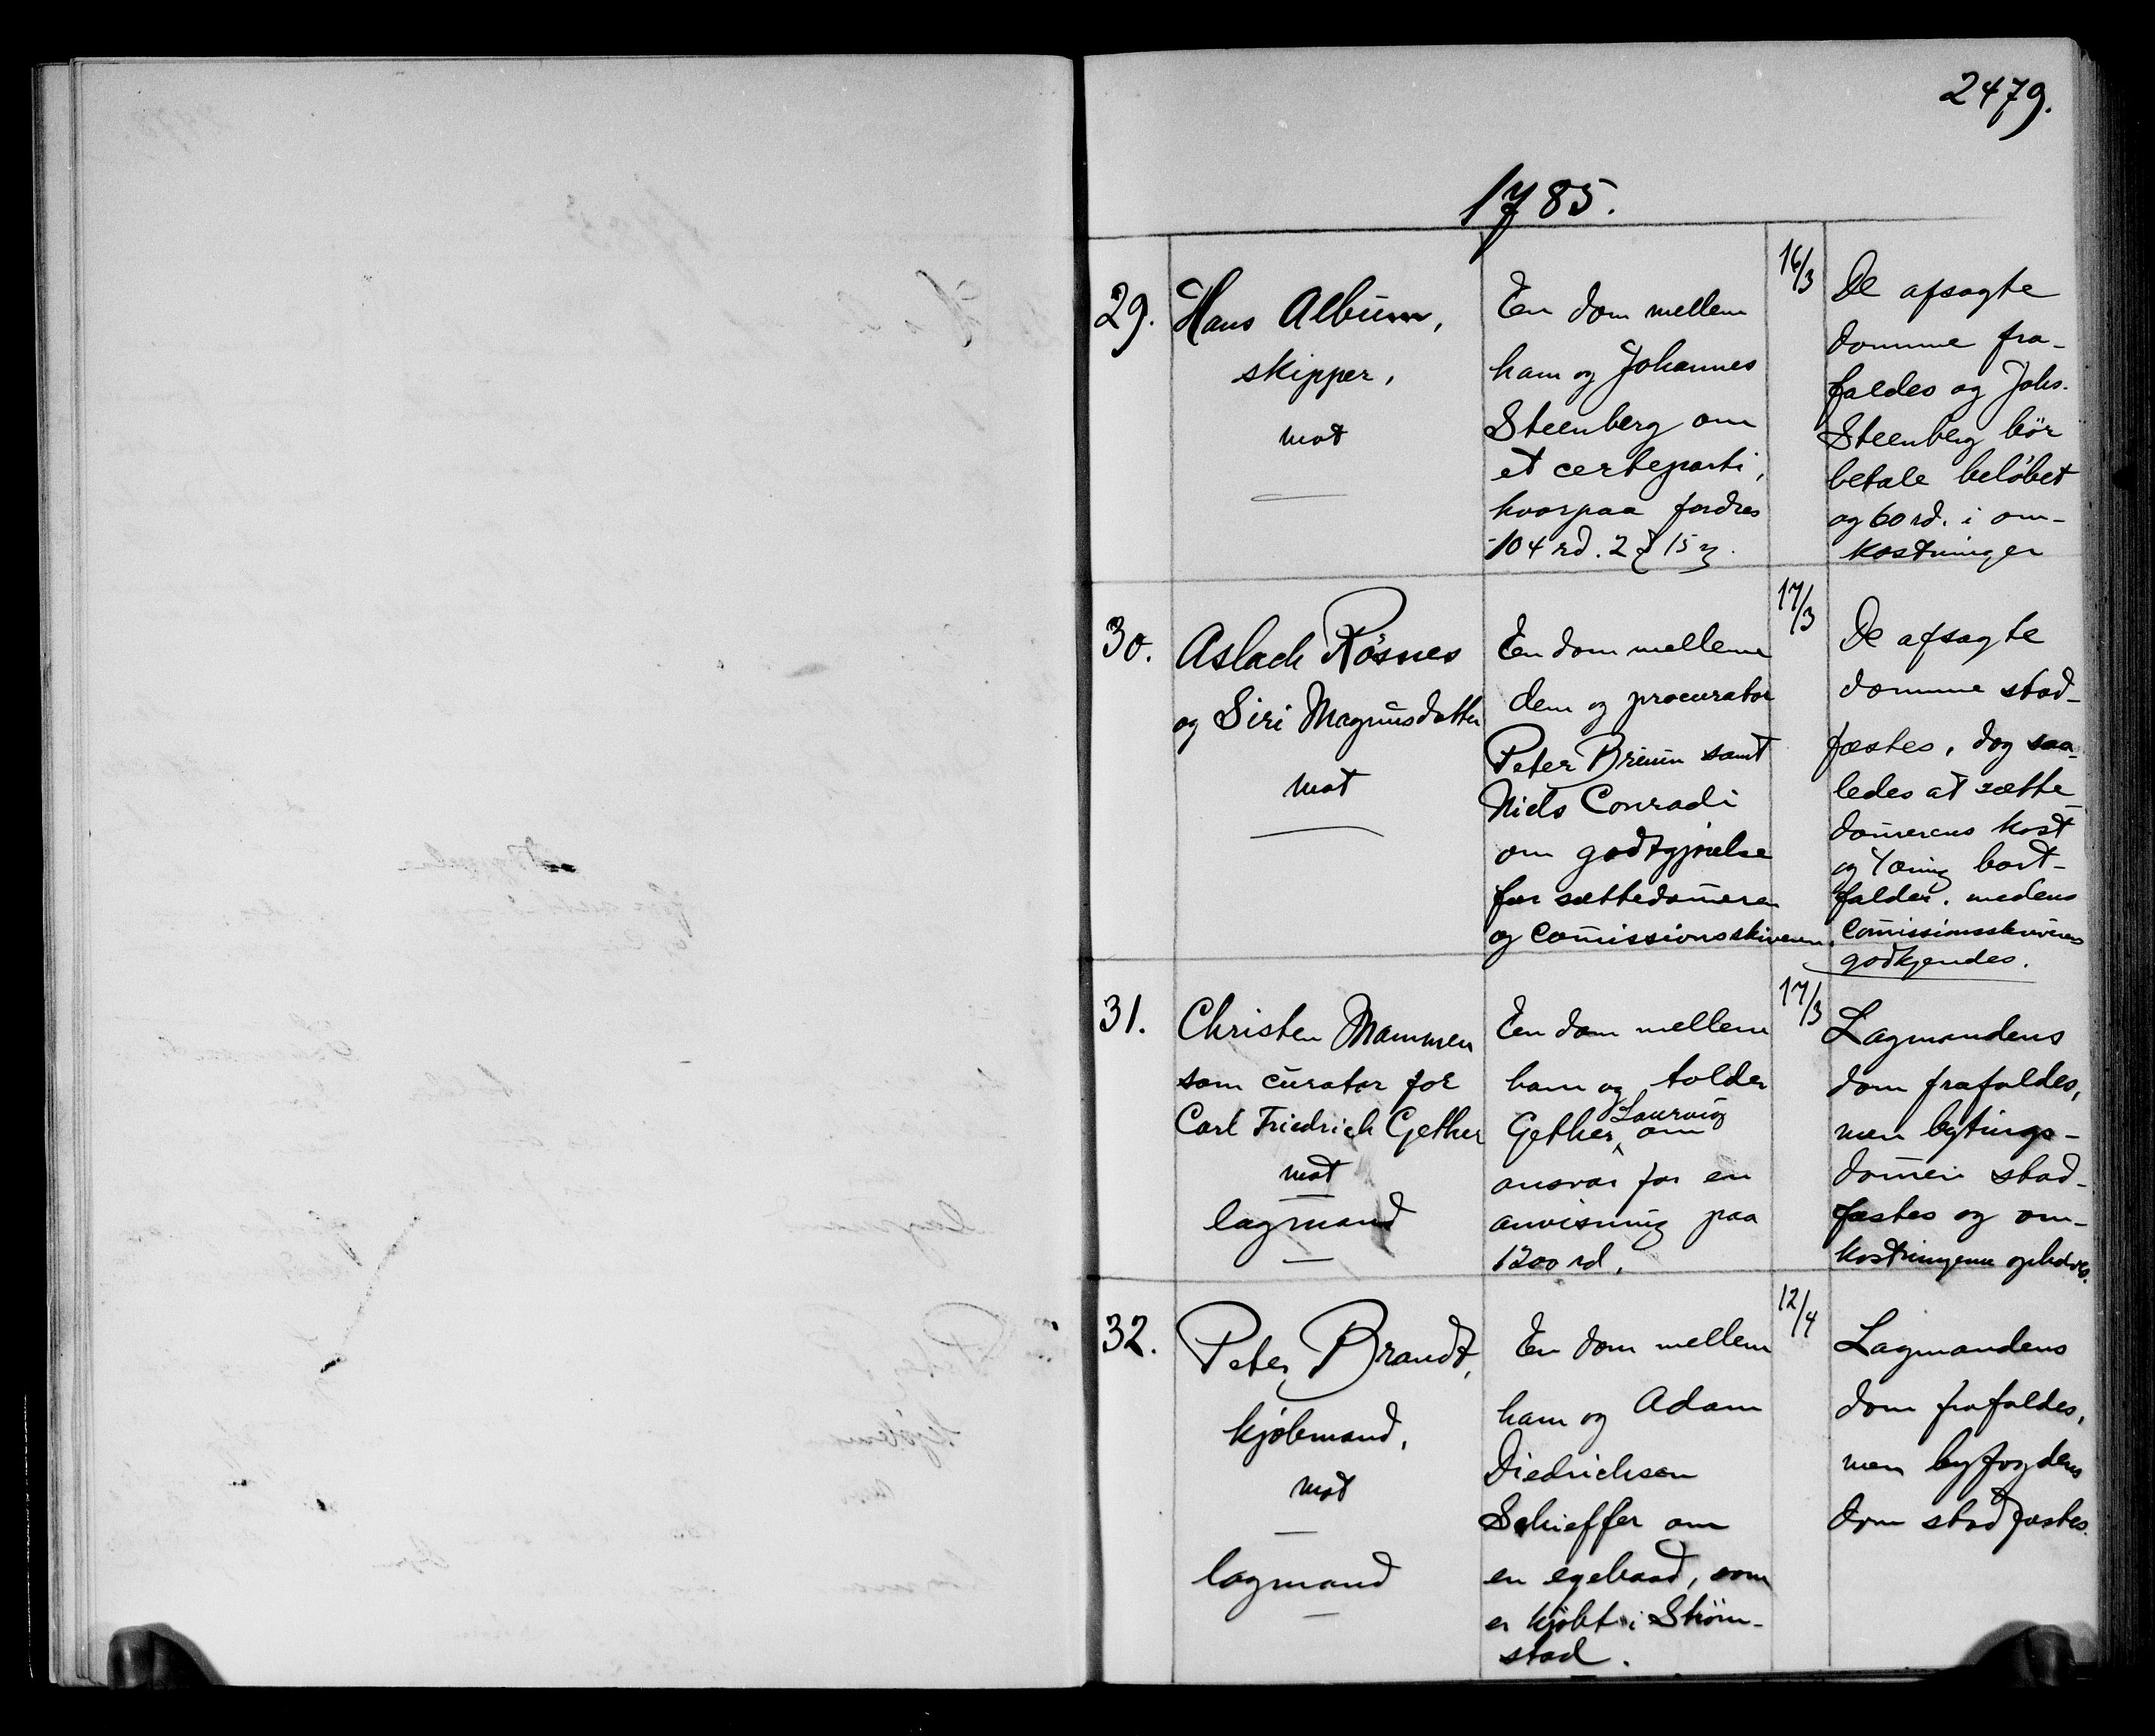 2479.
1785.
29.
Hans Album,
skipper,
mot
En dom mellem
ham og Johannes
Steenberg om
et certeparti,
hvorpaa fordres
104 rd. 2 15
16/3
De afsagte
domme fra-
faldes og Johs.
Steenberg bör
betale belöbet
og 60 rd. i om-
kostninger
30.
Aslach Rösnes
og Siri Magnusdatter
mot
En dom mellem
dem og procurator
Peter Bruun samt
Niels Conradi
om godtgjörelse
for sættedom̄eren
og com̄issionsskriveren.
17/3
De afsagte
domme stad-
fæstes, dog saa-
ledes at sætte-
dom̄erens kost
og tæring bort-
falder, medens
com̄issionsskriverens
godkjendes.
31.
Christen Mammen
som curator for
Carl Friedrich Gether
mot
lagmand
En dom mellem
ham og tolder
Gether, Laurvig om
ansvar for en
anvisning paa
1200 rd.
17/3
Lagmandens
dom frafaldes,
men bytings-
dom̄en stad-
fæstes og om-
kostningerne ophæves.
32.
Peter Brandt,
kjöbmand,
mot
lagmand
En dom mellem
ham og Adam
Diedrichsen
Schieffer om
en egebaad, som
er kjöbt i Ström-
stad.
12/4
Lagmandens
dom frafaldes,
men byfogdens
dom stadfæstes.